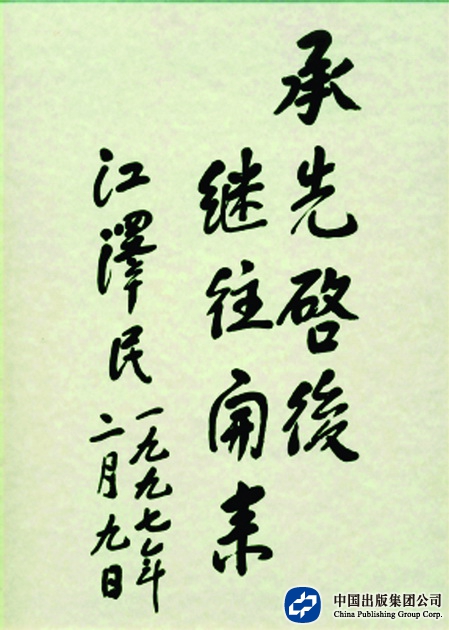 承先啓後
继往开来
江澤民
一九九七年
二月九日
中国出版集团公司
China Publishing Group Corp.